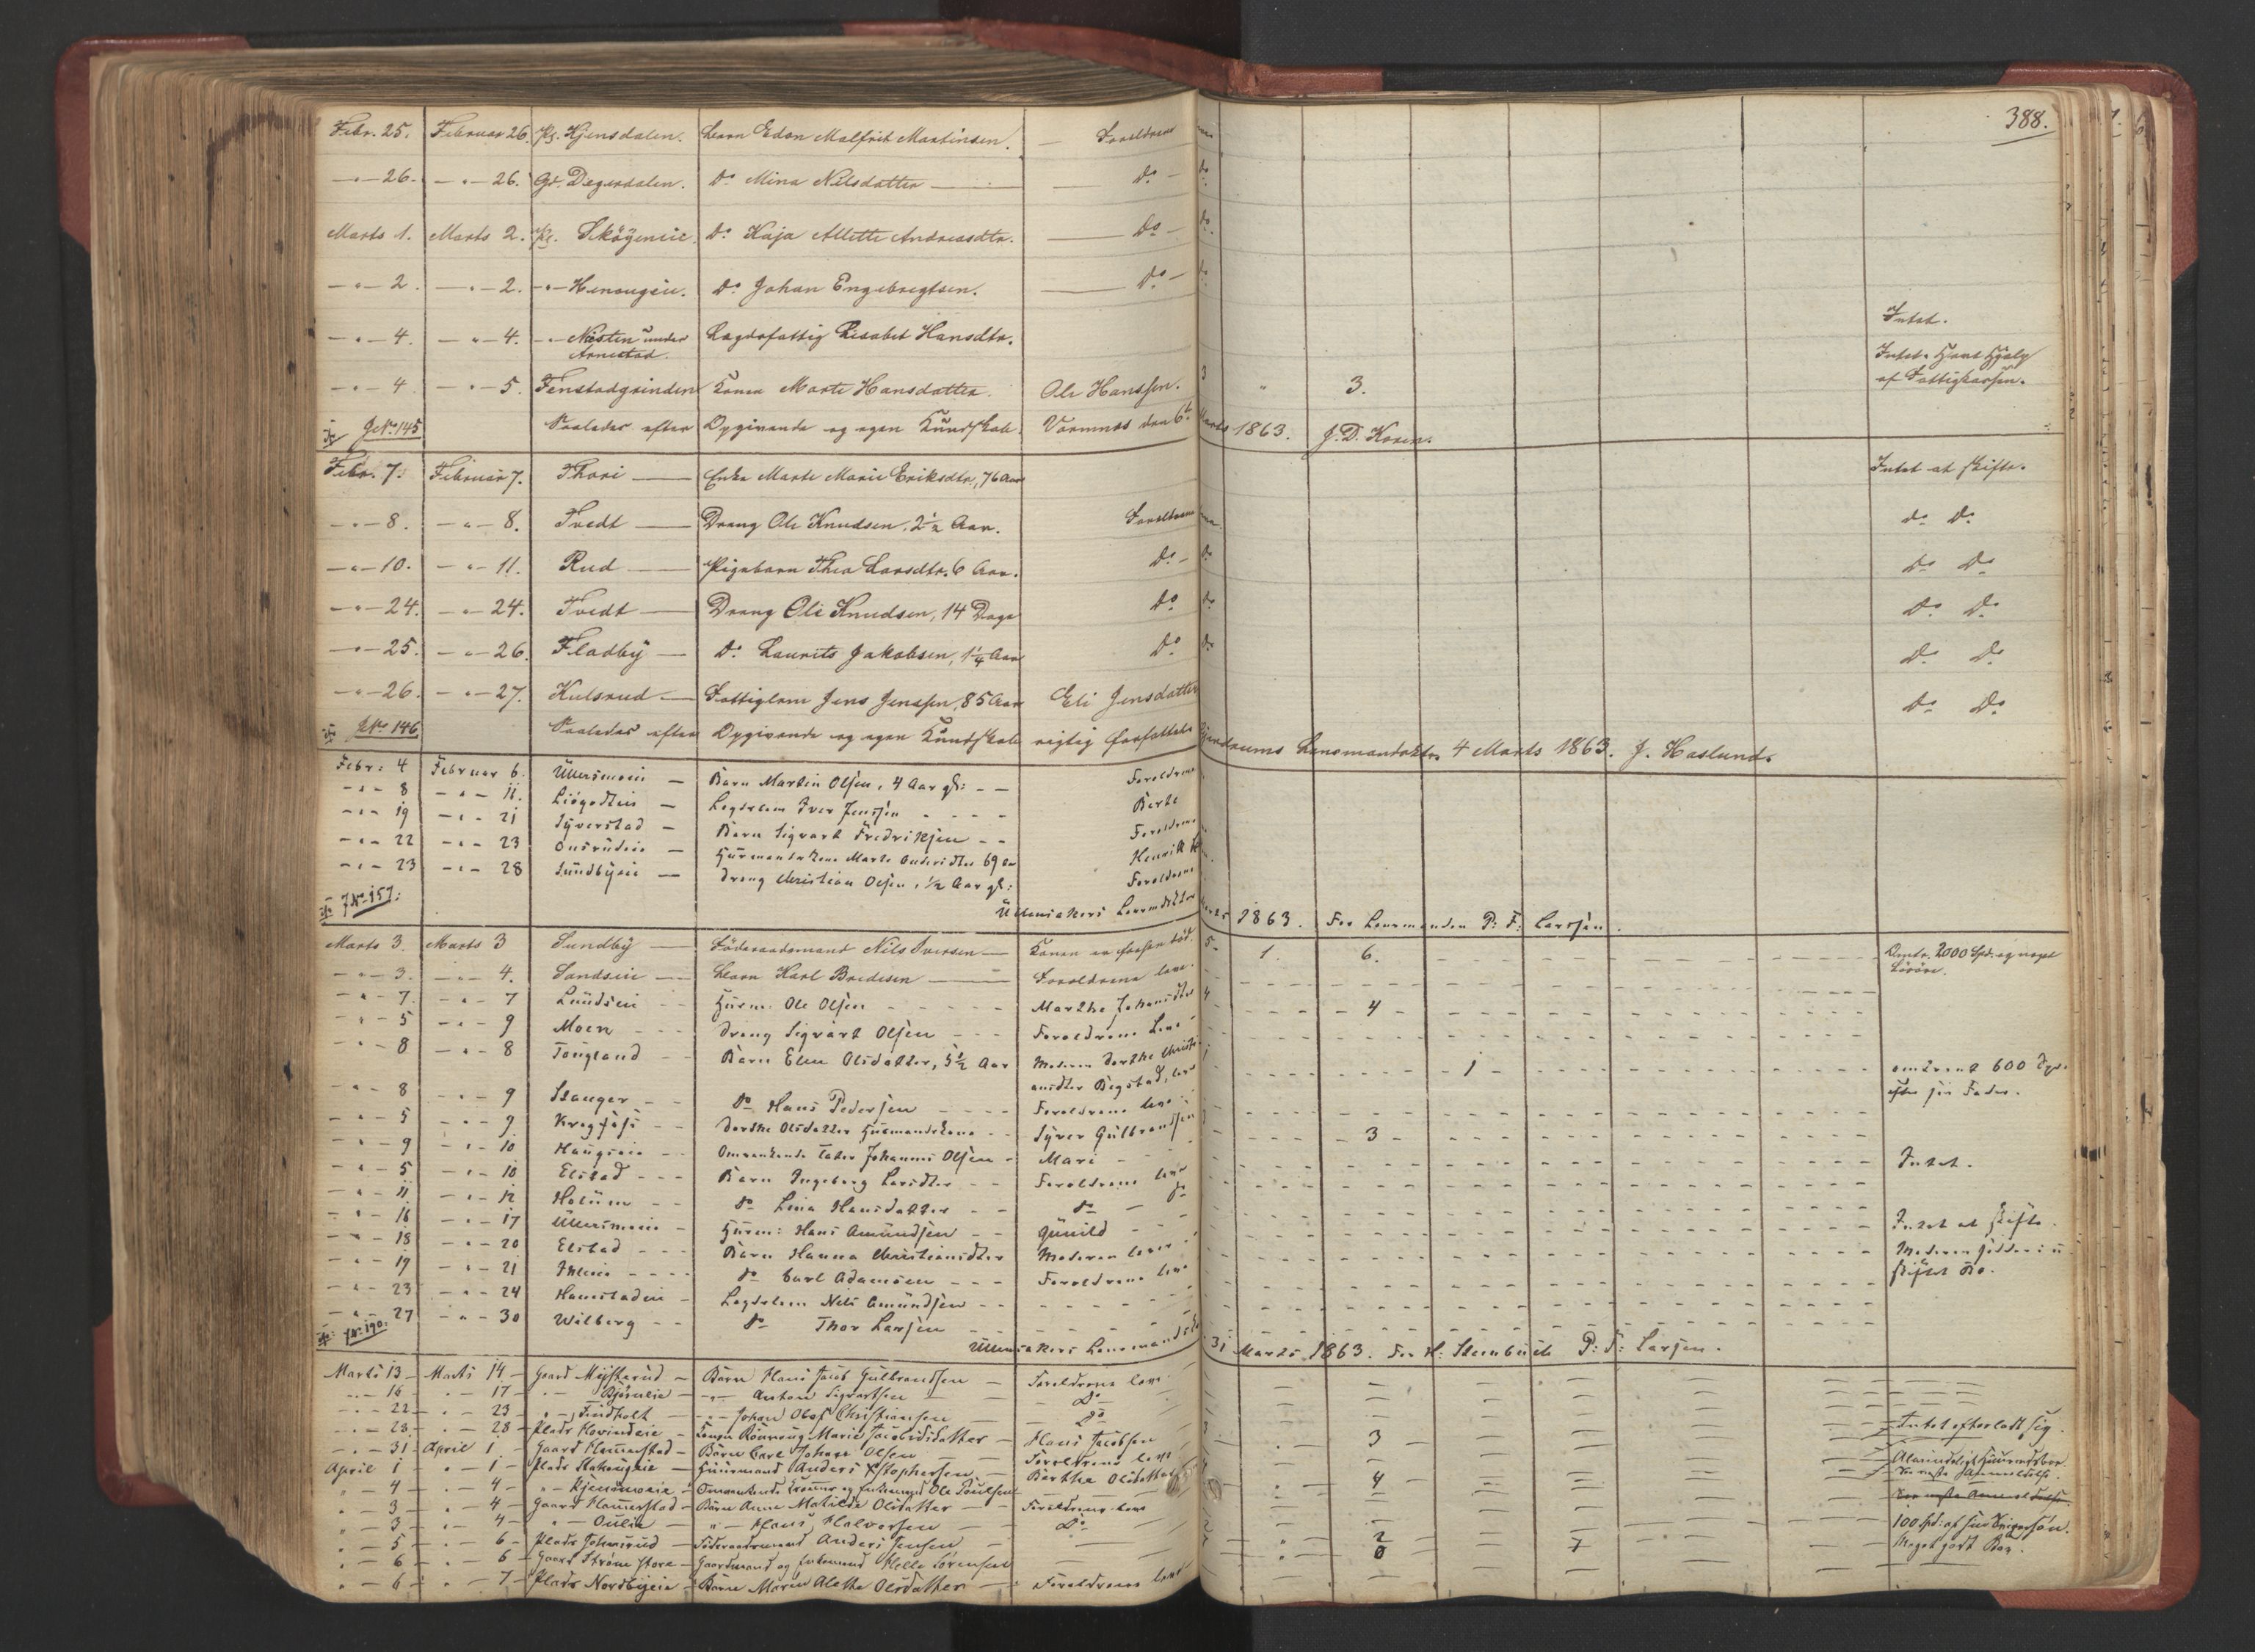 388.
Febr. 25. Februar 26. Pl. Hjensdalen. Barn Edon Malfrid Martinsen. — Forældrene
— " — 26. — " — 26. Gd. Degerdalen. Do Mina Nilsdatter — Do —
Marts 1. Marts 2. Pl. Skögeneie. Do Kaja Allette Andreasdtr. — Do —
— " — 2. — " — 2. — " — Do Johan Engebregtsen. — Do —
— " — 4. — " — 4. — " — under Lægdsfattig Lisabet Hansdtr. Intet.
Arnestad.
— " — 4 — " — 5. Fenstadgrinden Konen Marte Hansdatter. Ole Hanssen. 3 " 3. Intet. Havt Hjelp
af Fattigkassen.
JNo 145 Saaledes efter Opgivende og egen Kundskab. Vormnes den 6te Marts 1863. J. D. Koren.
Febr. 7. Februar 7. Thori — Enke Marte Marie Eriksdtr., 76 Aar Intet at skifte.
— " — 8. — " — 8. Tvedt — Dreng Ole Knudsen, 2½ Aar. Forældrene Do Do
— " — 10. — " — 11. Rud — Pigebarn Thea Larsdtr. 6 Aar. Do — Do Do Do
— " — 24. — " — 24. Tvedt — Dreng Ole Knudsen, 14 Dage Do Do Do Do
— " — 25. — " — 26. Fladby — Do Laurits Jakobsen, 1¼ Aar Do Do Do Do
— " — 26. — " — 27. Kulsrud — Fattiglem Jens Jenssen, 85 Aar Eli Jensdatter Do Do
JNo 146 Saaledes efter Opgivende og egen Kundskab rigtig forfattet. Gjerdrums Lensmandsktr. 4 Marts 1863. J. Haslund.
Febr: 4 Februar 6. Ullersmoeie — Barn Martin Olsen, 4 Aar gl: — — Forældrene
— " — 8 — " — 11. — Legdslem Iver Jenssen - - - - Berte
— " — 19 — " — 21 Syverstad — Barn Sigvart Fredriksen — — Forældrene
— " — 22 — " — 23 Onsrudeie — Huusmandskone Marte 69 Aar Henrik
— " — 23 — " — 28 Sundbyeie — Dreng Christian Olsen, ½ Aar gl: Forældrene
JNo 157: Ullensakers Lensmdsktr Marts 1863. For Lensmanden P: F: Larsen.
Marts 3. Marts 3 Sundby — Föderaadsmand Nils Iversen — Konen er forhen död. 5 1. 6. Omtr. 2000 Spd. og noget
Lösöre.
— " — 3. — " — 4. Sandseie — Barn Karl Bredesen — Forældrene leve.
— " — 7. — " — 7 Lundseie — Husm: Ole Olsen - - - - Marthe Johansdtr 4 4
— " — 5 — " — 9 Moen - - - Dreng Sigvart Olsen - - - Forældrene leve
— " — 8 — " — 8 Tougland - - Barn Elen Olsdatter, 5½ Aar Moderen Dorthe Christi- 1 1 omtrent 600 Spd.
ansdtr Bøgstad, lever efter sin Fader.
— " — 8 — " — 9 Stanger - - Do Hans Pedersen - - - - Forældrene leve
— " — 5 — " — 9 - - Dorthe Olsdatter Husmandskone - - Syver Gulbrandsen 3
— " — 9 — " — 10 Haugseie - - Omvankende Tater Johannes Olsen - Mari - - Intet.
— " — 5 — " — 10 Elstad - - - Barn Ingeborg Larsdtr - - Forældrene leve
— " — 11 — " — 12 Holum - - Do Lina Hansdatter - - Do — Do
— " — 16 — " — 17 Ullersmoeie - Husm: Hans Amundsen - - Gunild - - Intet at skifte.
— " — 18 — " — 20 Elstad - - - Barn Hanna Christiansdtr Moderen lever Moderen sidder i u-
skiftet Bo.
— " — 19 — " — 21 - - - - Do Carl Adamsen - - - Forældrene leve
— " — 23 — " — 24 Haustadeie - Legdslem Nils Amundsen - - - - -
— " — 27 — " — 30 Wilberg - - Do Thor Larsen - - -
JNo 190. Ullensakers Lensmandsktr 31 Marts 1863. For H: Steenbuch P: F: Larsen.
Marts 13 — Marts 14 — Gaard — Barn Hans Jacob Gulbrandsen — Forældrene leve
— " — 16 — " — 17 — " — Björneie — " — Anton Sigvartsen — Do —
— " — 22 — " — 23 — " — Findholt — " — Johan Olaf Christiansen — Do
— " — 23 — " — 28 — Plads Hovindeie — Konen Rönnaug Marie Jacobsdatter — Hans Jacobsen 3 3 — Intet efterladt sig.
— " — 31 April 1 — Gaard Hammerstad — Barn Carl Johan Olsen — Forældrene leve
April 1 " — 1 — Plads — Huusmand Anders Kristophersen — Berthe Olsdatter 4 Almindeligt Huusmdsboe.
" — 4 " — 4 — " — — Omvankende og Enkemand Ole Poulsen
" — 3 " — 4 — Gaard Hammerstad — Barn Anne Matilde Olsdatter — — Forældrene leve
" — 3 " — 4 — " — Oulie — " — Hans Halvorsen — Do
" — 5 " — 6 — Plads — Föderaadsmand Anders Jensen — 2 2 100 Spd: at
" — 6 " — 6 — Gaard Ström store — Gaardmand og Enkemand Helle Sörensen 0 7 Meget godt Boe.
" — 6 " — 7 — Plads Nordbyeie — Barn Maren Alethe Olsdatter — Forældrene leve